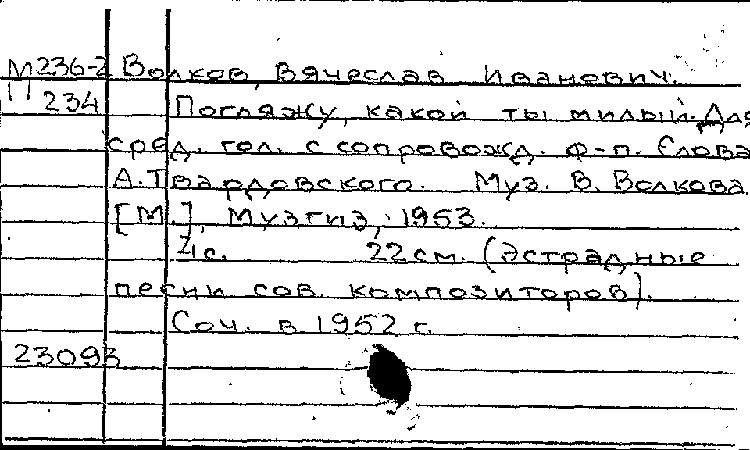 М236-2 Волков, Вячеслав Иванович.
П 234 Погляжу, какой ты милый. Для
сред. гол. с сопровожд. ф-п. Слова
А. Твардовского. Муз. В. Волкова.
[М.], Музгиз, 1953.
4 с. 22 см. (Эстрадные
песни сов. композиторов).
Соч. в 1952 г.
23093